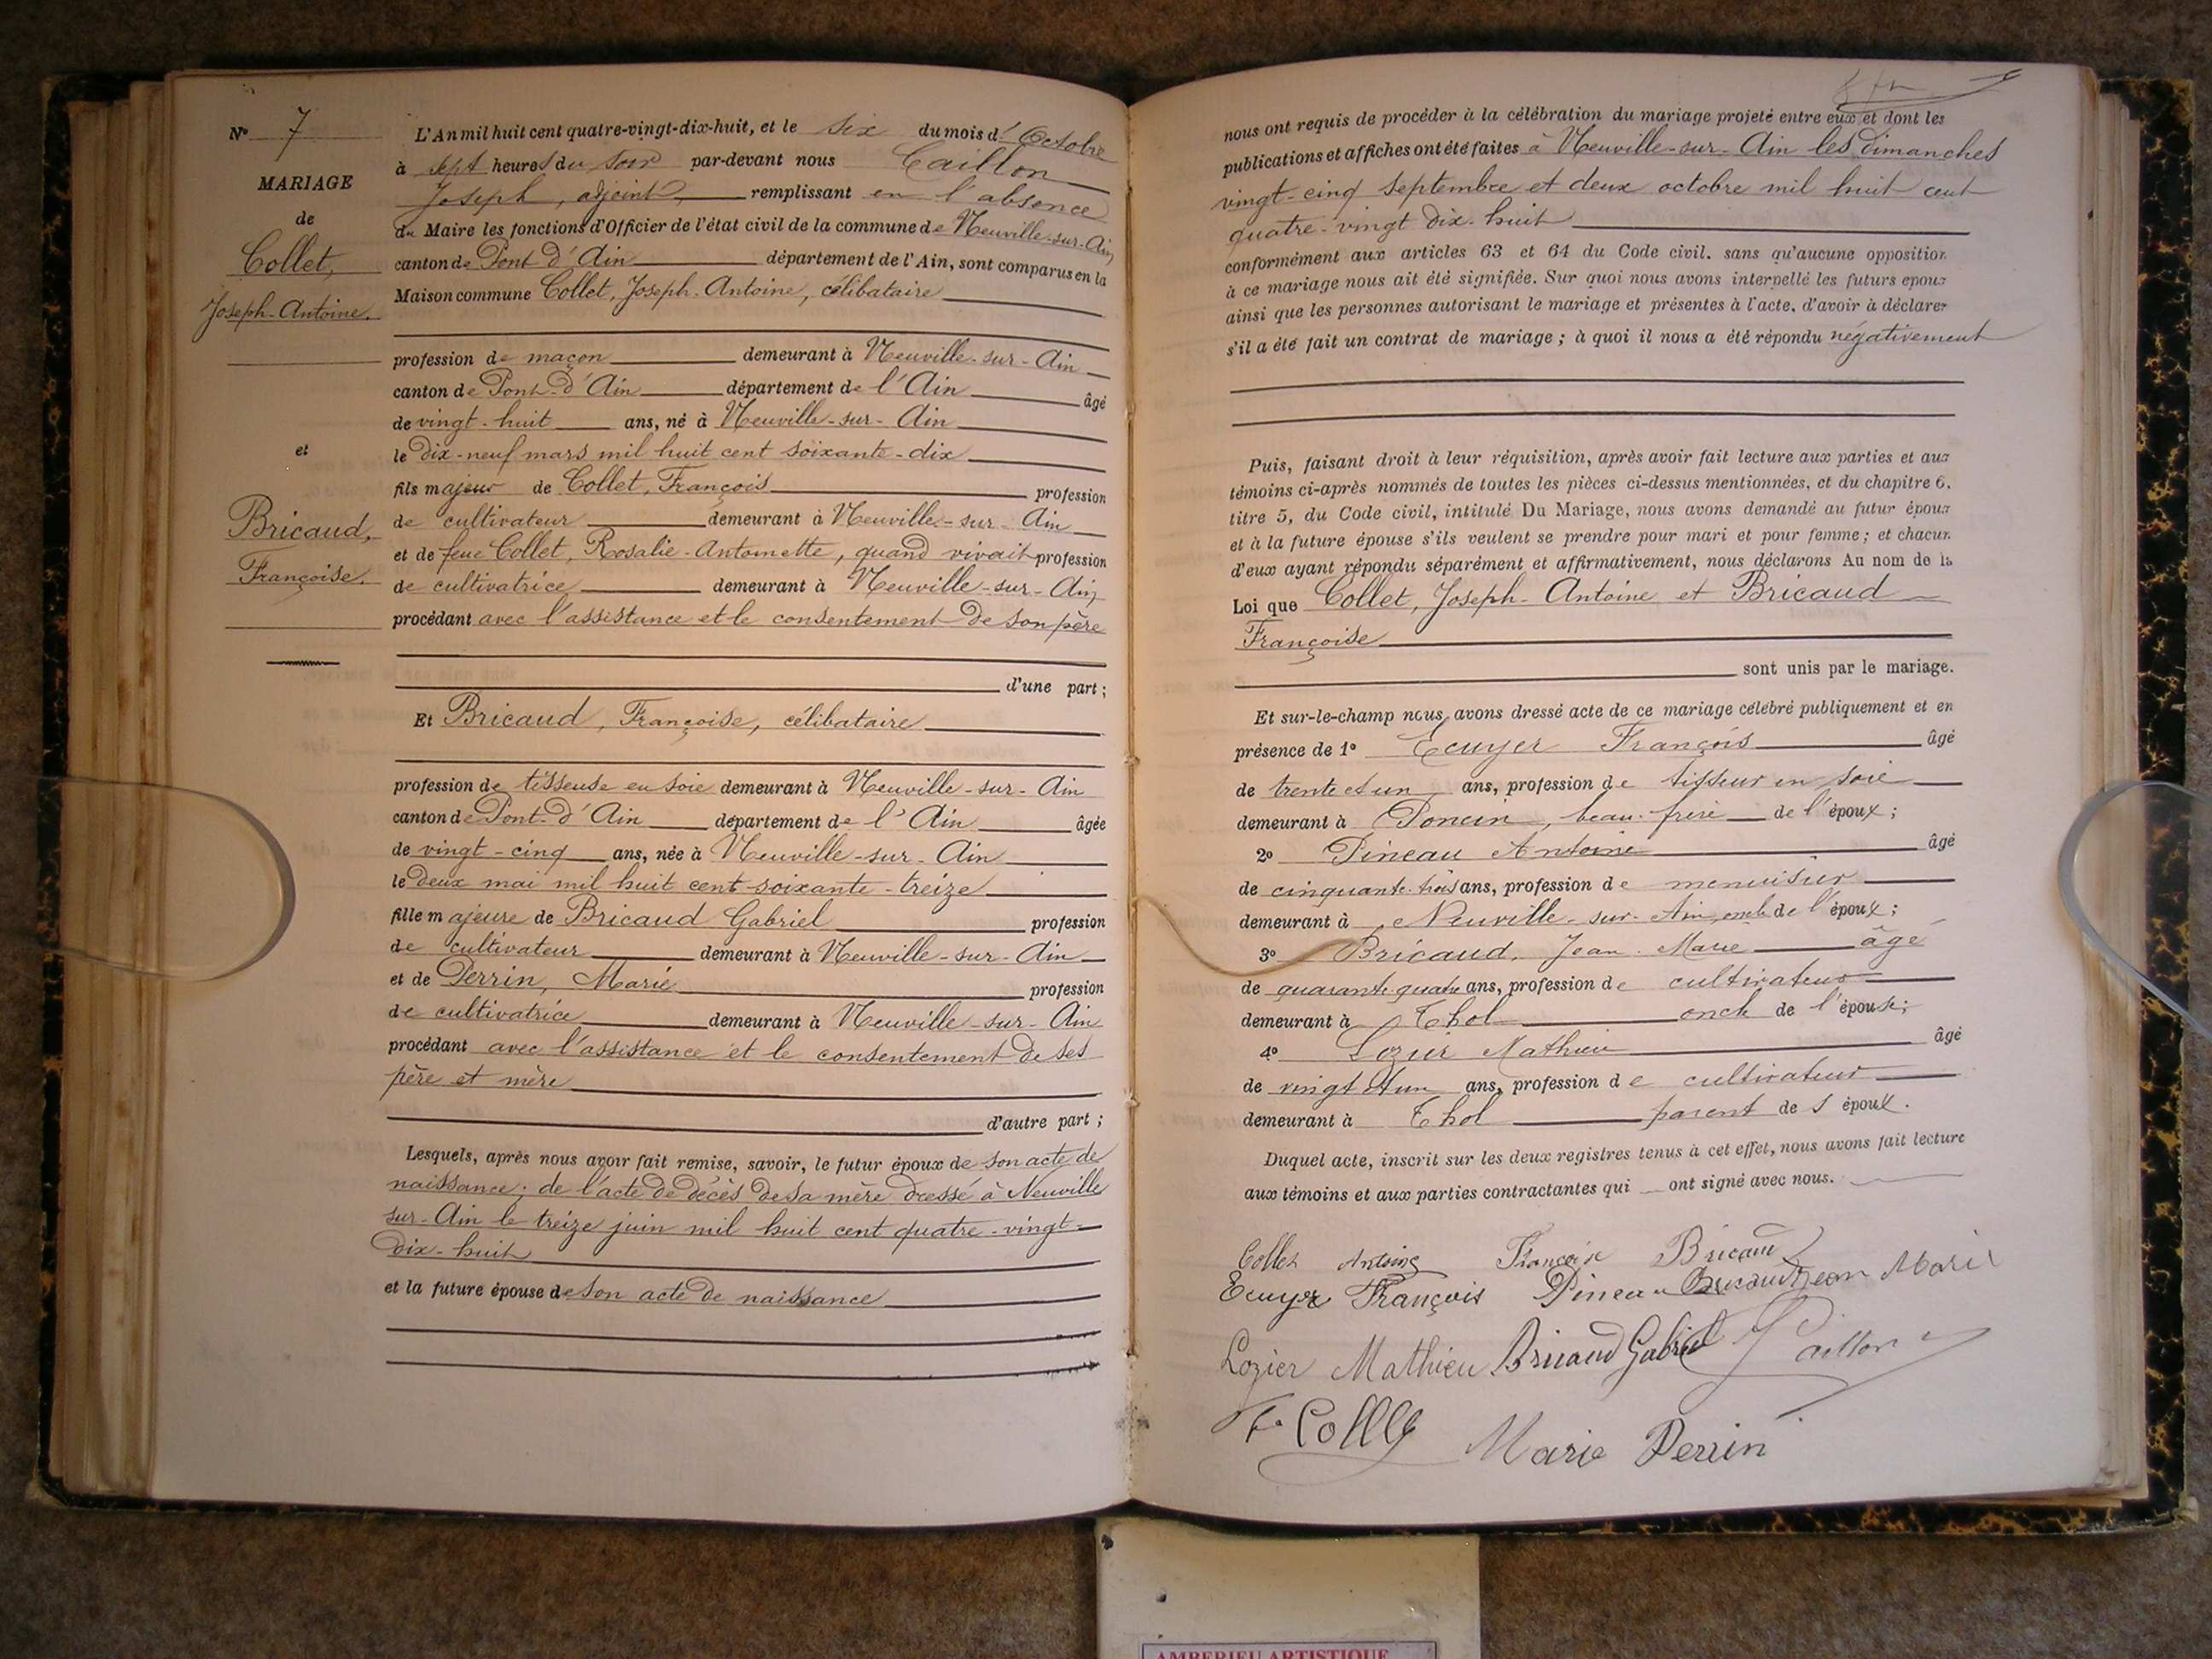 N° 7
MARIAGE
de
Collet,
Joseph-Antoine.
et
Bricaud,
Françoise.
L'An mil huit cent quatre-vingt-dix-huit, et le six du mois d' Octobre
à sept heures du soir par-devant nous Caillon
Joseph, adjoint, remplissant en l'absence
du Maire les fonctions d'Officier de l'état civil de la commune de Neuville-sur-Ain
canton de Pont d'Ain département de l'Ain, sont comparus en la
Maison commune Collet, Joseph-Antoine, célibataire
profession de maçon demeurant à Neuville-sur-Ain
canton de Pont-d'Ain département de l'Ain âgé
de vingt-huit ans, né à Neuville-sur-Ain
le dix-neuf mars mil huit cent soixante-dix
fils majeur de Collet, François profession
de cultivateur demeurant à Neuville-sur-Ain
et de feue Collet, Rosalie-Antoinette, quand vivait profession
de cultivatrice demeurant à Neuville-sur-Ain
procédant avec l'assistance et le consentement de son père
d'une part ;
Et Bricaud, Françoise, célibataire
profession de tisseuse en soie demeurant à Neuville-sur-Ain
canton de Pont-d'Ain département de l'Ain âgée
de vingt-cinq ans, née à Neuville-sur-Ain
le deux mai mil huit cent soixante-treize
fille majeure de Bricaud Gabriel profession
de cultivateur demeurant à Neuville-sur-Ain
et de Perrin, Marie profession
de cultivatrice demeurant à Neuville-sur-Ain
procédant avec l'assistance et le consentement de ses
père et mère
d'autre part ;
Lesquels, après nous avoir fait remise, savoir, le futur époux de son acte de
naissance; de l'acte de décès de sa mère dressé à Neuville
sur-Ain le treize juin mil huit cent quatre-vingt-
dix-huit
et la future épouse de son acte de naissance
nous ont requis de procéder à la célébration du mariage projeté entre eux et dont les
publications et affiches ont été faites à Neuville-sur-Ain les dimanches
vingt-cinq septembre et deux octobre mil huit cent
quatre-vingt dix-huit
conformément aux articles 63 et 64 du Code civil. sans qu'aucune opposition
à ce mariage nous ait été signifiée. Sur quoi nous avons interpellé les futurs époux
ainsi que les personnes autorisant le mariage et présentes à l'acte, d'avoir à déclarer
s'il a été fait un contrat de mariage ; à quoi il nous a été répondu négativement
Puis, faisant droit à leur réquisition, après avoir fait lecture aux parties et aux
témoins ci-après nommés de toutes les pièces ci-dessus mentionnées, et du chapitre 6,
titre 5, du Code civil, intitulé Du Mariage, nous avons demandé au futur époux
et à la future épouse s'ils veulent se prendre pour mari et pour femme ; et chacun
d'eux ayant répondu séparément et affirmativement, nous déclarons Au nom de la
Loi que Collet, Joseph-Antoine et Bricaud
Françoise
sont unis par le mariage.
Et sur-le-champ nous avons dressé acte de ce mariage célébré publiquement et en
présence de 1° Ecuyer François âgé
de trente et un ans, profession de tisseur en soie
demeurant à Poncin, beau-frère de l'époux ;
2° Pineau Antoine âgé
de cinquante-trois ans, profession de menuisier
demeurant à Neuville-sur-Ain, oncle de l'époux ;
3° Bricaud, Jean-Marie âgé
de quarante quatre ans, profession de cultivateur
demeurant à Thol oncle de l'épouse ;
4° Lozier Mathieu âgé
de vingt et un ans, profession de cultivateur
demeurant à Thol parent de s époux.
Duquel acte, inscrit sur les deux registres tenus à cet effet, nous avons fait lecture
aux témoins et aux parties contractantes qui ont signé avec nous.
Collet Antoine Françoise Bricaud
Ecuyer François Pineau Bricaud Jean Marie
Lozier Mathieu Bricaud Gabriel Caillon
F. Collet Marie Perrin
AMBERIEU ARTISTIQUE